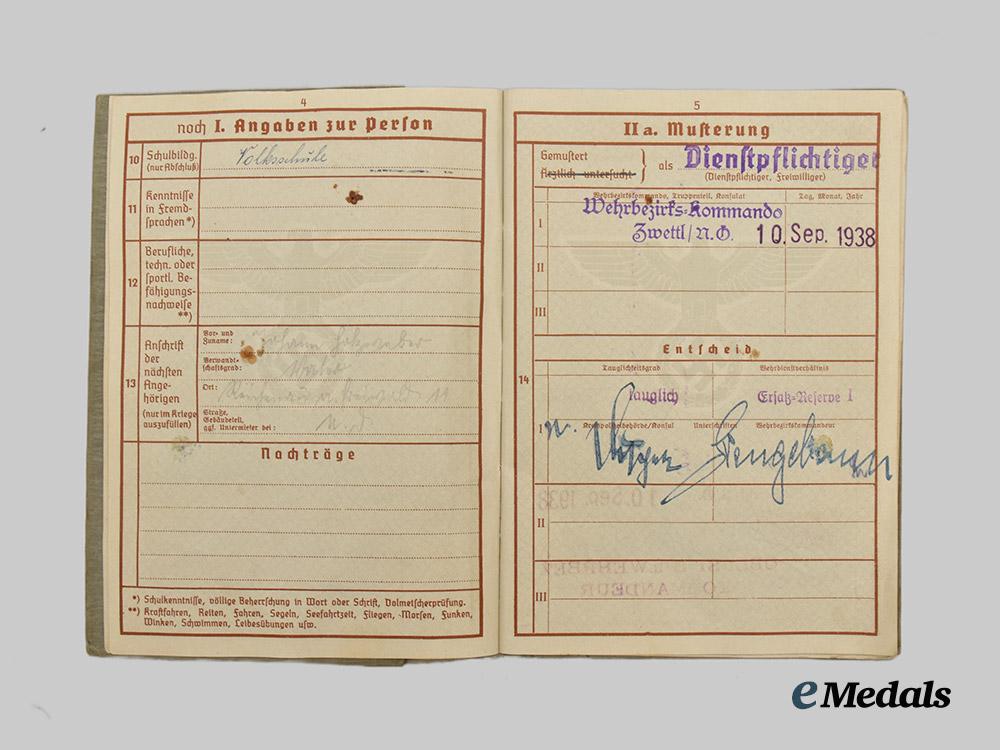 4
noch I. Angaben zur Person
10 Schulbildg.
(nur Abschluß)
Volksschule
11 Kenntnisse
in Fremd-
sprachen*)
12 Berufliche,
techn. oder
sportl. Be-
fähigungs-
nachweise
**)
13 Anschrift
der
nächsten
Ange-
hörigen
(nur im Kriege
auszufüllen)
Vor- und
Zuname:
Johann
Verwandt-
schaftsgrad:
Ort:
Straße,
Gebäudeteil,
ggf. Untermieter bei:
Nachträge
*) Schulkenntnisse, völlige Beherrschung in Wort oder Schrift, Dolmetscherprüfung.
**) Kraftfahren, Reiten, Fahren, Segeln, Seefahrtzeit, Fliegen, Morsen, Funken,
Winken, Schwimmen, Leibesübungen usw.
5
IIa. Musterung
Gemustert
Ärztlich untersucht
als Dienstpflichtiger
(Dienstpflichtiger, Freiwilliger)
Wehrbezirkskommando, Truppenteil, Konsulat
Tag, Monat, Jahr
I Wehrbezirks-Kommando
Zwettl/N.Ö. 10. Sep. 1938
II
III
Entscheid
14
Tauglichkeitsgrad
Wehrdienstverhältnis
tauglich
Ersatz-Reserve I
I
Kreispolizeibehörde/Konsul Unterschriften Wehrbezirkskommandeur
II
III
eMedals